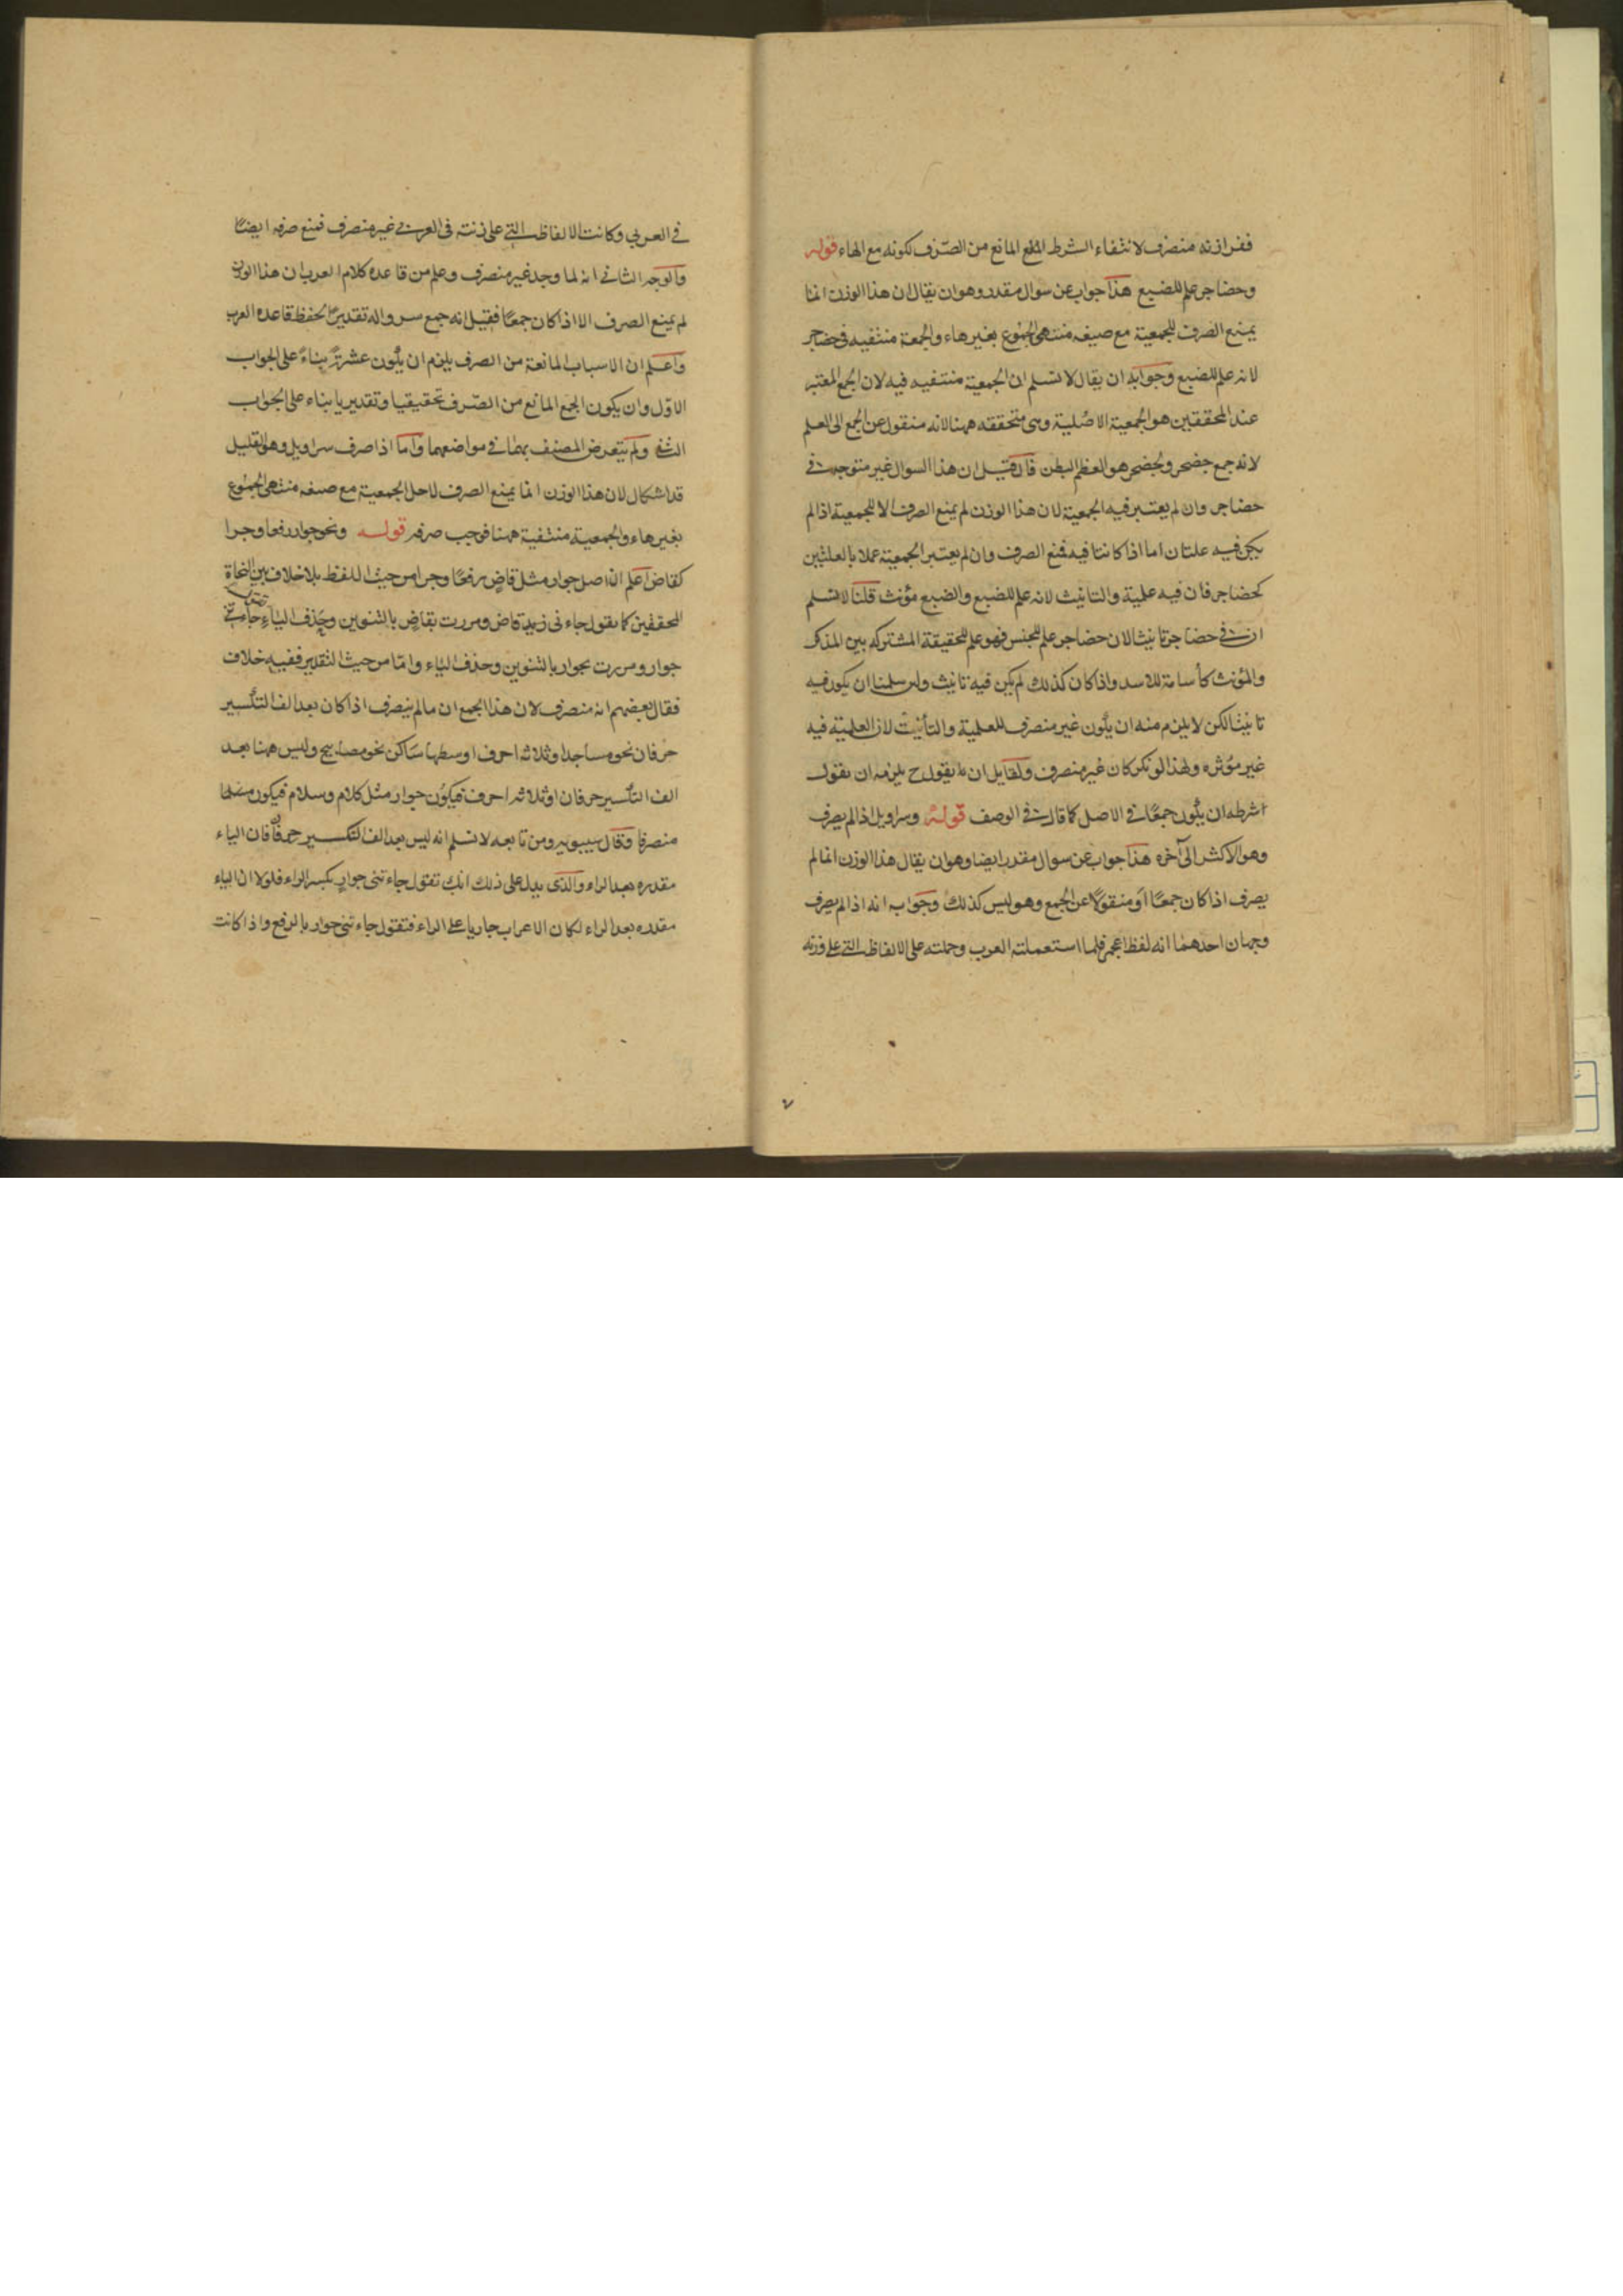 ففرازنه منصرف لانتفاء الشرط المانع من الصرف لكونه مع الهاء قوله
وحضاجر علم للضبع هذا جواب عن سوال مقدر وهو ان يقال ان هذا الوزن انما
يمنع الصرف للجمعية مع صيغه منتهى الجموع بغير هاء والجمعة منتفيه فى حضاجر
لانه علم للضبع وجوابه ان يقال لا نسلم ان الجمعية منتفيه فيه لان الجمع المعتبر
عند المحققين هو الجمعية الاصلية وهى متحققه ههنا لانه منقول عن الجمع الى العلم
لانه جمع حضجر والحضجر هو العظيم البطن فان قيل ان هذا السوال غير متوجه فى
حضاجر وان لم يعتبر فيه الجمعية لان هذا الوزن لم يمنع الصرف الا للجمعية اذا لم
يكن فيه علتان اما اذا كانتا فيه فمنع الصرف وان لم يعتبر الجمعية عملا بالعلتين
كحضاجر فان فيه علمية والتانيث لانه علم للضبع والضبع مؤنث قلنا لا نسلم
ان فى حضاجر تانيثا لان حضاجر علم للجنس فهو علم للحقيقة المشتركه بين المذكر
والمؤنث كأسامة للاسد واذا كان كذلك لم يكن فيه تانيث ولين سلمنا ان يكون فيه
تانيثا لكن لا يلزم منه ان يكون غير منصرف للعلمية والتأنيث لان العلمية فيه
غير مؤثره ولهذا لو نكر كان غير منصرف ولقايل ان يقول ح يلزمه ان يقول
شرطه ان يكون جمعا فى الاصل كما قال فى الوصف قوله وسراويل اذا لم يصرف
وهو الاكثر الى آخره هذا جواب عن سوال مقدر ايضا وهو ان يقال هذا الوزن انما لم
يصرف اذا كان جمعا او منقولا عن الجمع وهو ليس كذلك وجوابه انه اذا لم يصرف
وجهان احدهما انه لفظ اعجمى فلما استعملته العرب وحملته على الالفاظ التى على وزنه
فى العربى وكانت الالفاظ التى على زنته فى العربى غير منصرف فمنع صرفه ايضا
والوجه الثانى انه لما وجد غير منصرف وعلم من قاعده كلام العرب ان هذا الوزن
لم يمنع الصرف الا اذا كان جمعا فقيل انه جمع سرواله تقديرا لحفظ قاعده العرب
واعلم ان الاسباب المانعة من الصرف يلزم ان يكون عشرة بناء على الجواب
الاول وان يكون الجمع المانع من الصرف تحقيقيا وتقديريا بناء على الجواب
الثانى ولم يتعرض المصنف بهما فى مواضعهما واما اذا صرف سراويل وهو القليل
فلا اشكال لان هذا الوزن انما يمنع الصرف لاجل الجمعية مع صيغه منتهى الجموع
بغير هاء والجمعية منتفية ههنا فوجب صرفه قوله ونحو جوار رفعا وجرا
كقاض اعلم ان اصل جوار مثل قاض رفعا وجرا من حيث اللفظ بلا خلاف بين النحاة
المحققين كما يقول جاءنى زيد قاض ومررت بقاض بالتنوين وحذف الياء جاءتنى
جوار ومررت بجوار بالتنوين وحذف الياء واما من حيث التقدير ففيه خلاف
فقال بعضهم انه منصرف لان هذا الجمع انما لم ينصرف اذا كان بعد الف التكسير
حرفان نحو مساجد او ثلاثه احرف اوسطها ساكن نحو مصابيح وليس ههنا بعد
الف التكسير حرفان او ثلاثه احرف فيكون جوار مثل كلام وسلام فيكون مثلها
منصرفا وقال سيبويه ومن تابعه لا نسلم انه ليس بعد الف التكسير حرفان فان الياء
مقدره بعد الراء والذى يدل على ذلك انك تقول جاءتنى جوار بكسر الراء فلولا ان الياء
مقدره بعد الراء لكان الاعراب جاريا على الراء فتقول جاءتنى جوار بالرفع واذا كانت